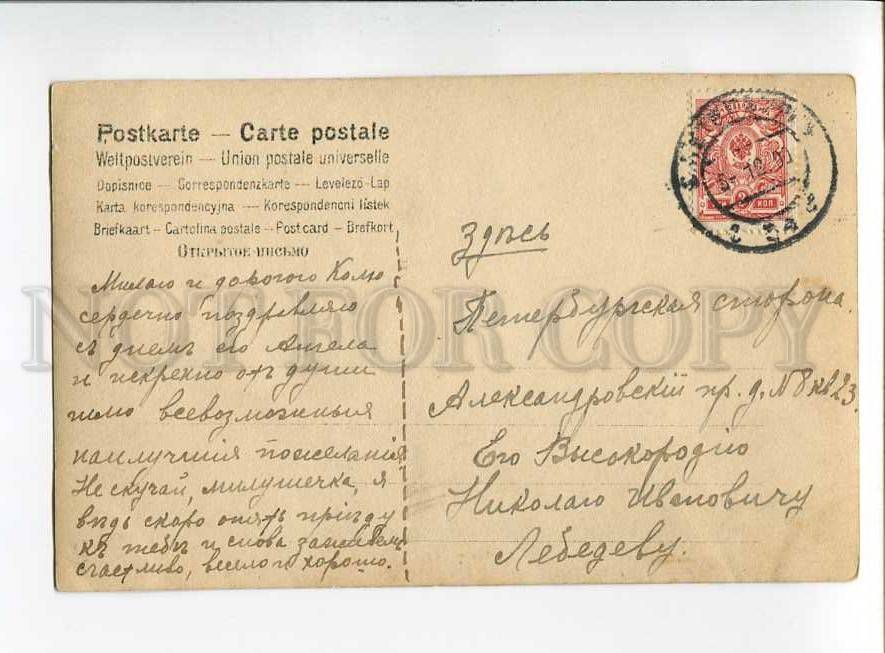 Postkarte — Carte postale
Weltpostverein — Union postale universelle
Dopisnice — Correspondenzkarte — Levelező-Lap
Karta korespondencyjna — Korespondencni lístek
Briefkaart — Cartolina postale — Post card — Brefkort
Открытое письмо
Милаго и дорогого Колю
сердечно поздравляю
съ днемъ его Ангела
и искренно отъ души
шлю всевозможныя
наилучшія пожеланія
Не скучай, милушечка, я
вѣдь скоро опять пріѣду
къ тебѣ и снова заживемъ
счастливо, весело и хорошо.
Здѣсь
Петербургская сторона
Александровскій пр. д. N 8 кв 23.
Его Высокородію
Николаю Ивановичу
Лебедеву.
NOT FOR COPY